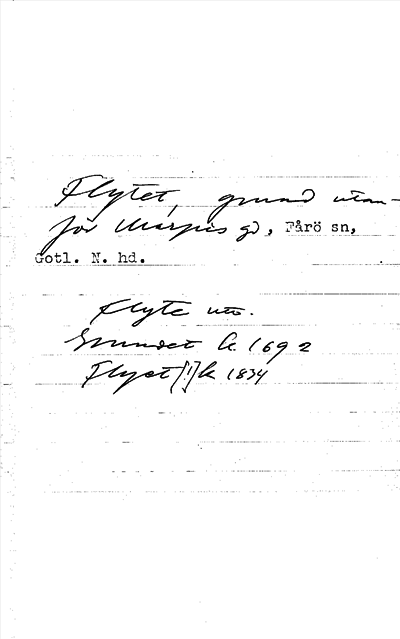 Flytet, grund utan-
för Marpes gd, Fårö sn,
Gotl. N. hd.
Flyte utr.
Grundet k. 1692
Flyet [!] k 1834